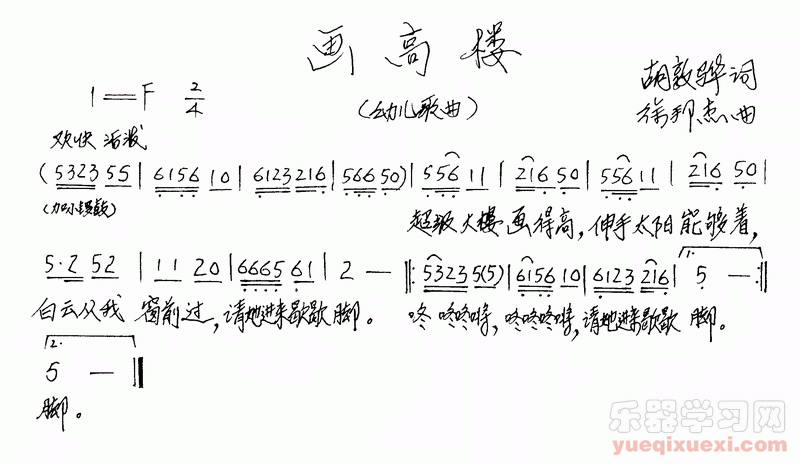 画高楼
1=F 2/4
(幼儿歌曲)
胡敦骅词
徐邦杰曲
欢快 活泼
(5323 55 | 6156 10 | 6123 216 | 566 50) | 556 11 | 216 50 | 556 11 | 216 50 |
(加小镲鼓)
超级大楼画得高,伸手太阳能够着,
5·2 52 | 11 20 | 6665 61 | 2 — |: 5323 5(5) | 6156 10 | 6123 216 | 1. 5 — :|
白云从我 窗前过,请她进来歇歇脚。 咚 咚咚啋,咚咚咚啋,请她进来歇歇脚。
2. 5 — |
脚。
乐器学习网
yueqixuexi.com